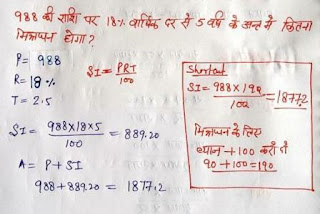 988 की राशि पर 18% वार्षिक दर से 5 वर्ष के अन्त में कितना
मिश्रधन होगा?
P= 988
R= 18%
T= 2.5
SI = PRT
100
SI = 988×18×5 = 889.20
100
A= P+SI
988+889.20 = 1877.2
Shortcut
SI = 988×190 = 1877.2
100
मिश्रधन के लिए
ब्याज +100 करते
90+100=190